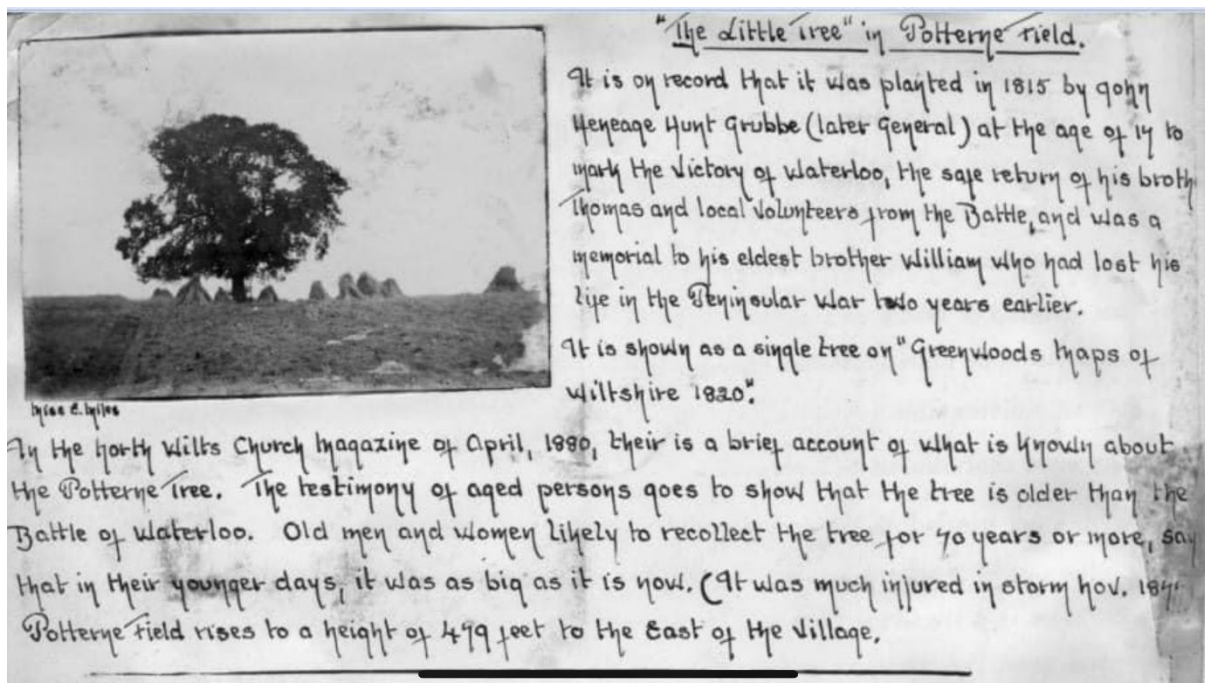 "The Little Tree" in Potterne Field.
It is on record that it was planted in 1815 by John
Heneage Hunt Grubbe (later General) at the age of to
mark the Victory of Waterloo, the safe return of his broth
Thomas and local Volunteers from the Battle, and was a
memorial to his eldest brother William who had lost his
life in the Peninsular War two years earlier.
It is shown as a single tree on "Greenwoods Maps of
Wiltshire 1820".
Miss E. Miles
In the North Wilts Church Magazine of April, 1880, their is a brief account of what is known about
the Potterne Tree. The testimony of aged persons goes to show that the tree is older than the
Battle of Waterloo. Old men and women likely to recollect the tree for 70 years or more, say
that in their younger days, it was as big as it is now. (It was much injured in storm Nov.
Potterne Field rises to a height of 479 feet to the East of the Village.